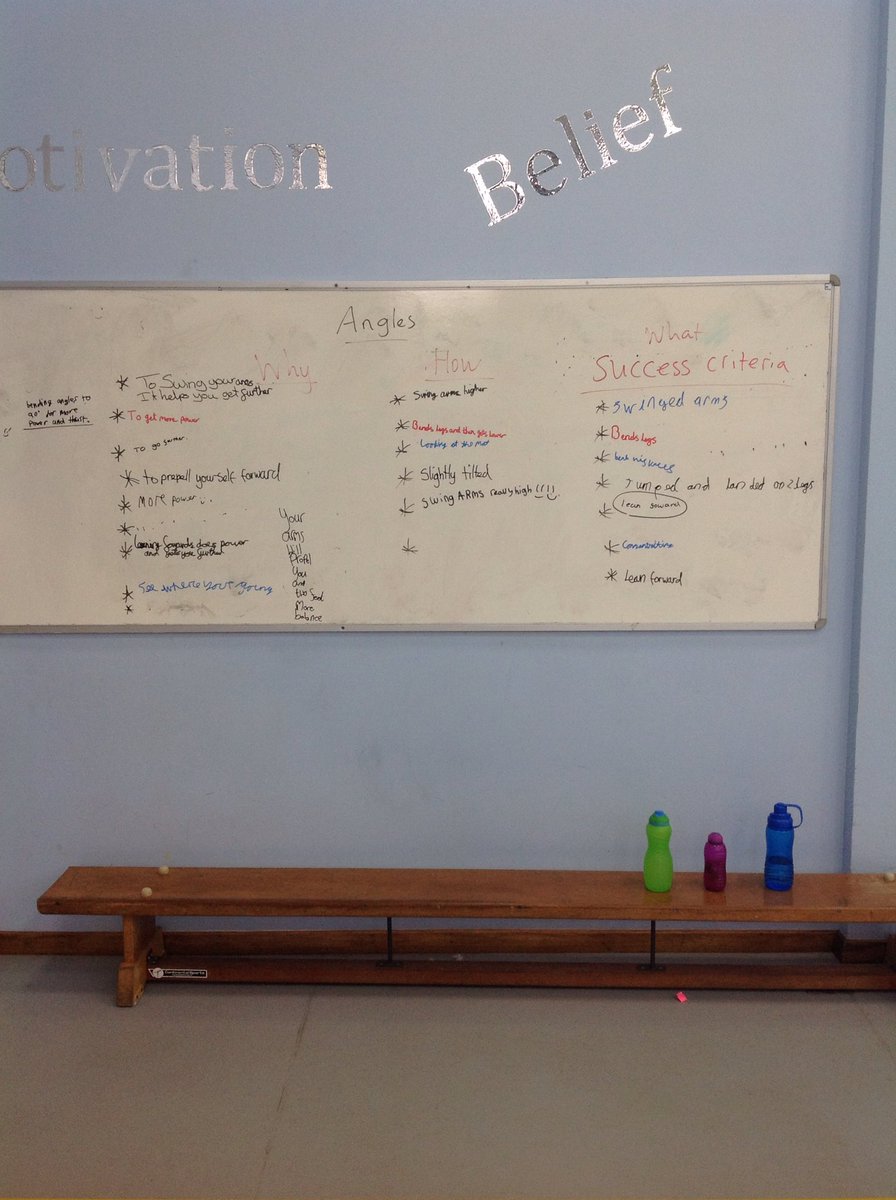 otivation
Belief
Angles
bending angles to
90° for more
power and thrust.
Why
* To Swing your arms
It helps you get further
* To get more power
* To go further
* to propell yourself forward
* More power
*
* Leaning forwards does power
and gets you further
* See where your going
*
Your
arms
will
you
and
More
balance
How
* Swing arms higher
* Bends legs and then gets lower
* Looking at the mat
* Slightly tilted
* Swing ARMS really high !!!!
*
What
Success criteria
* Swinged arms
* Bends legs
* bent his knees
* Jumped and landed on 2 legs
* lean foward
* Concentration
* Lean forward